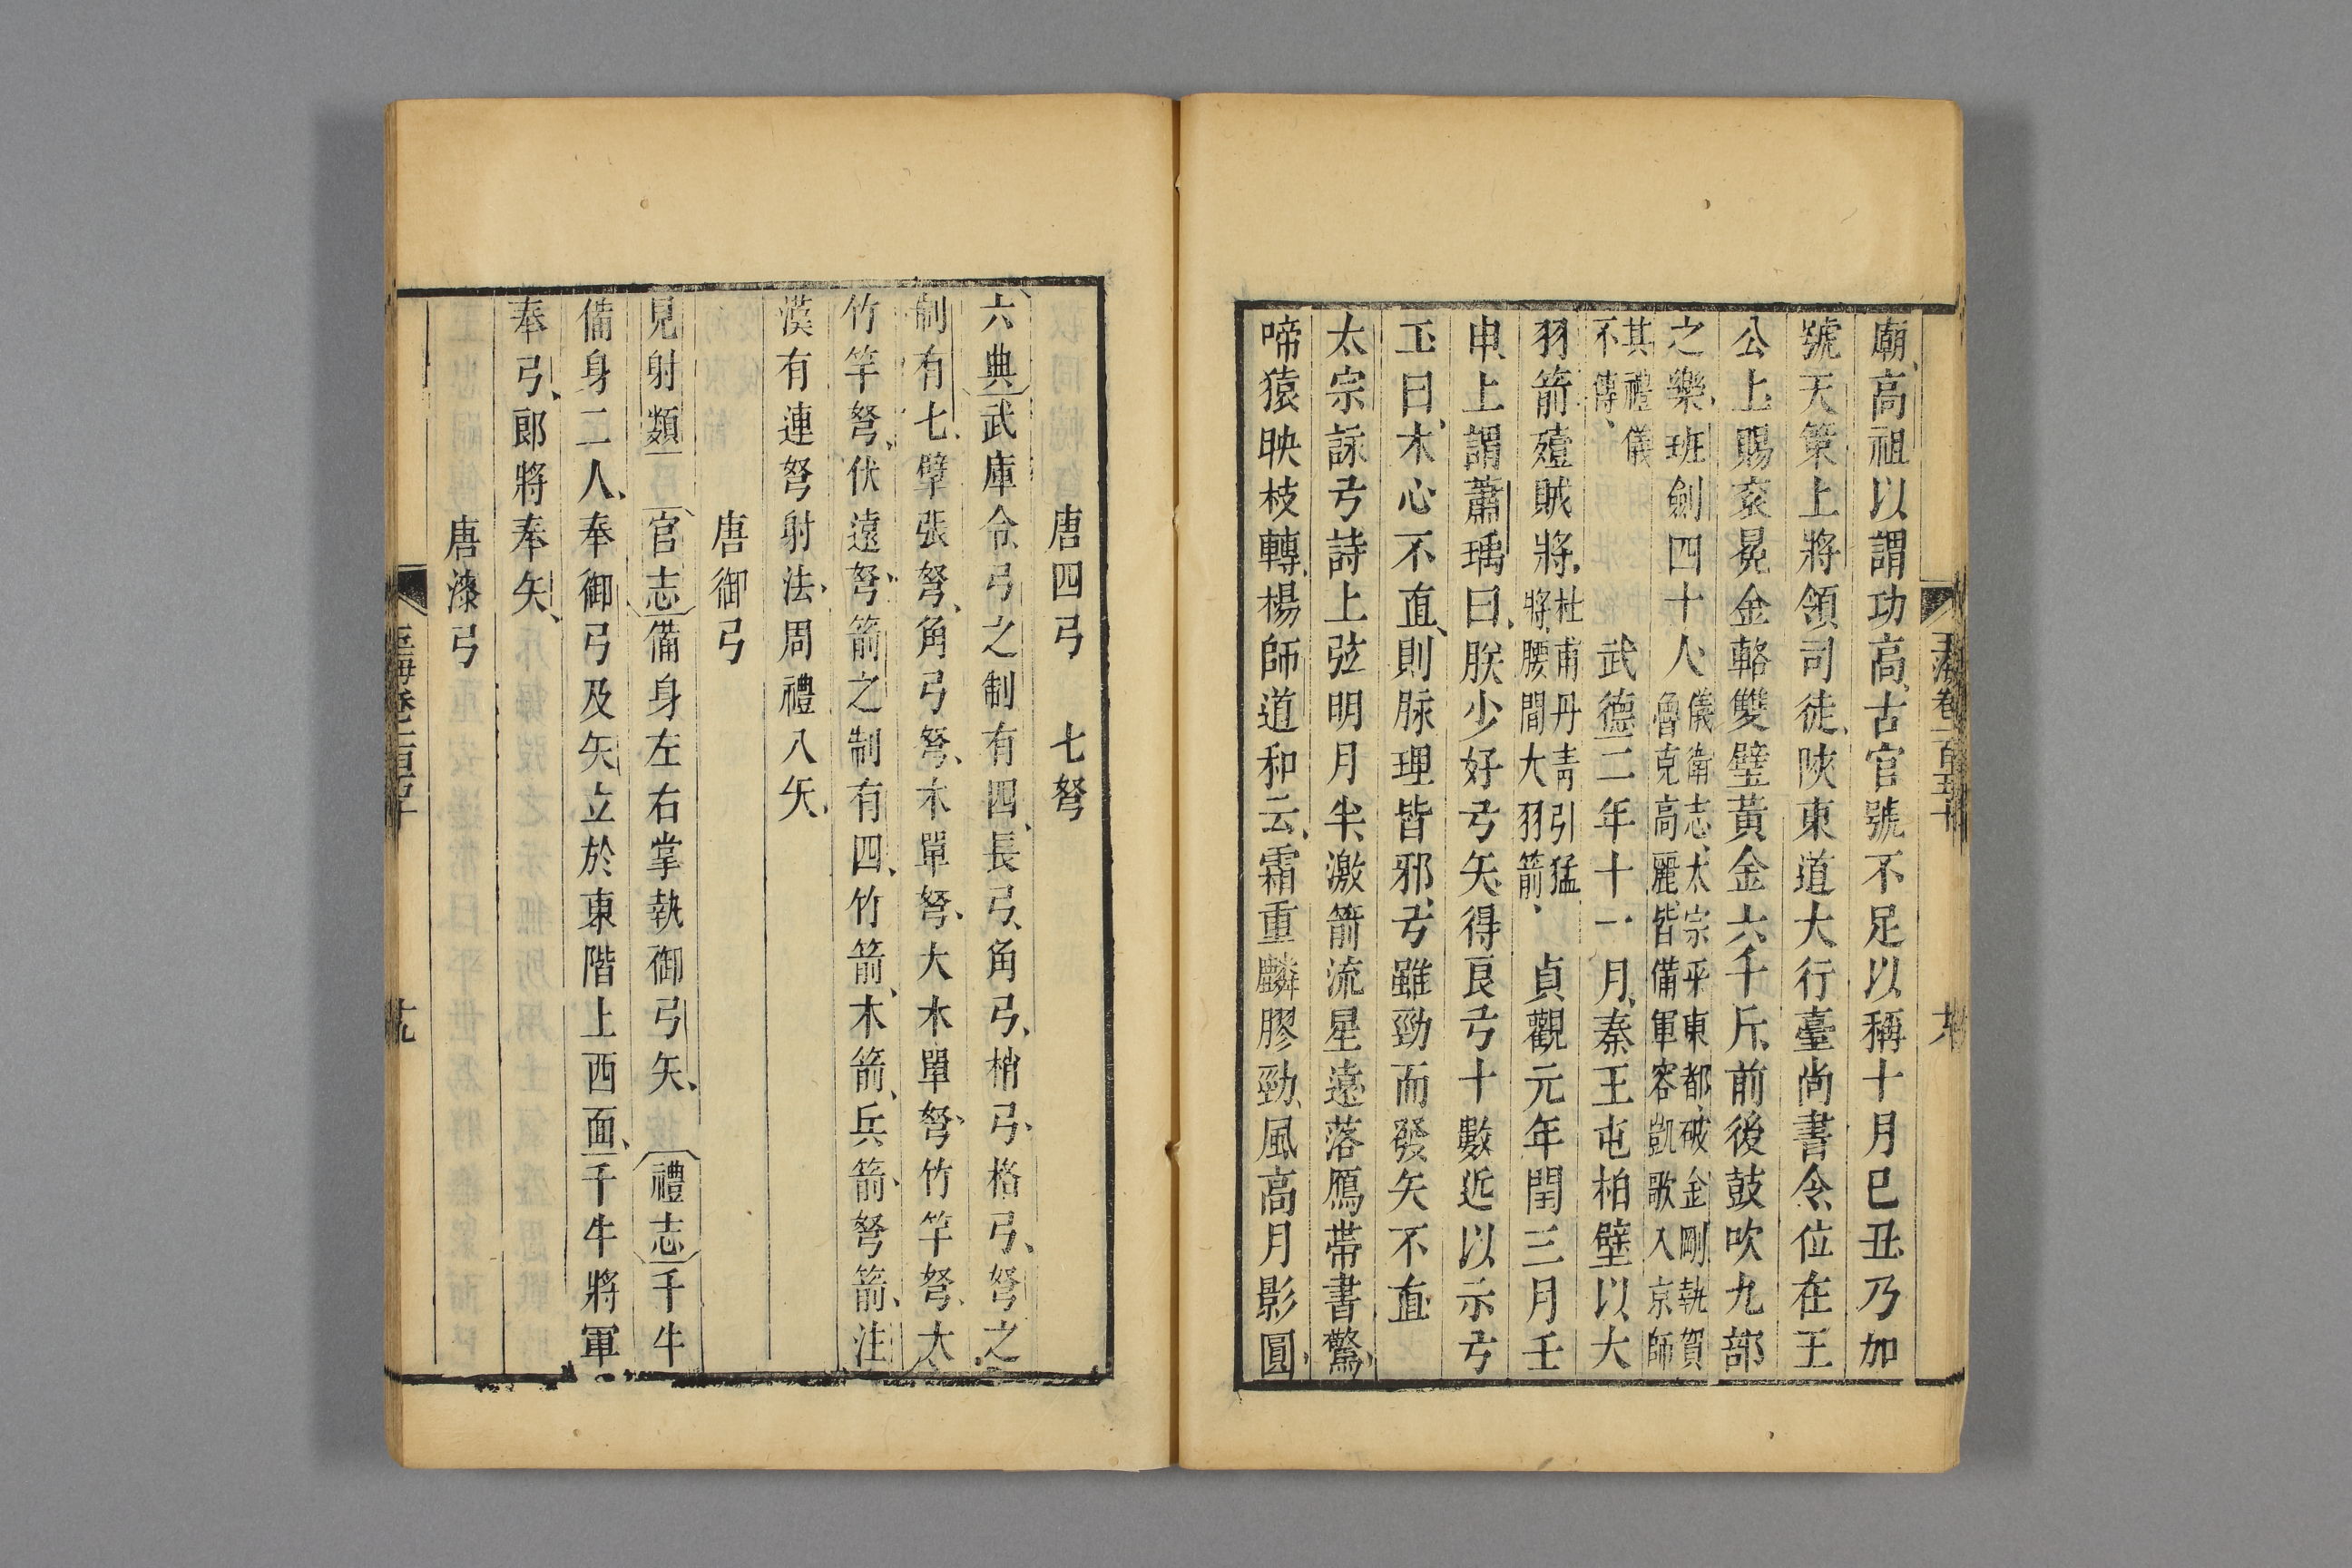 玉海卷一百五十
廟高祖以謂功高古官號不足以稱十月巳丑乃加
號天策上將領司徒陜東道大行臺尚書令位在王
公上賜衮冕金輅雙璧黃金六千斤前後鼓吹九部
之樂班劍四十人儀衛志太宗平東都破金剛執賀魯克高麗皆備軍容凱歌入京師
其禮儀不傳 武德二年十一月秦王屯柏壁以大
羽箭殪賊將杜甫丹青引猛將腰間大羽箭 貞觀元年閏三月壬
申上謂蕭瑀曰朕少好弓矢得良弓十數近以示弓
工曰木心不直則脉理皆邪弓雖勁而發矢不直
太宗詠弓詩上弦明月半激箭流星遠落鴈帶書驚
啼猿映枝轉楊師道和云霜重麟膠勁風高月影圓
唐四弓 七弩
六典武庫令弓之制有四長弓角弓梢弓格弓弩之
制有七擘張弩角弓弩木單弩大木單弩竹竿弩大
竹竿弩伏遠弩箭之制有四竹箭木箭兵箭弩箭注
漢有連弩射法周禮八矢
唐御弓
見射類 官志備身左右掌執御弓矢 禮志千牛
備身二人奉御弓及矢立於東階上西面千牛將軍
奉弓郎將奉矢
唐漆弓